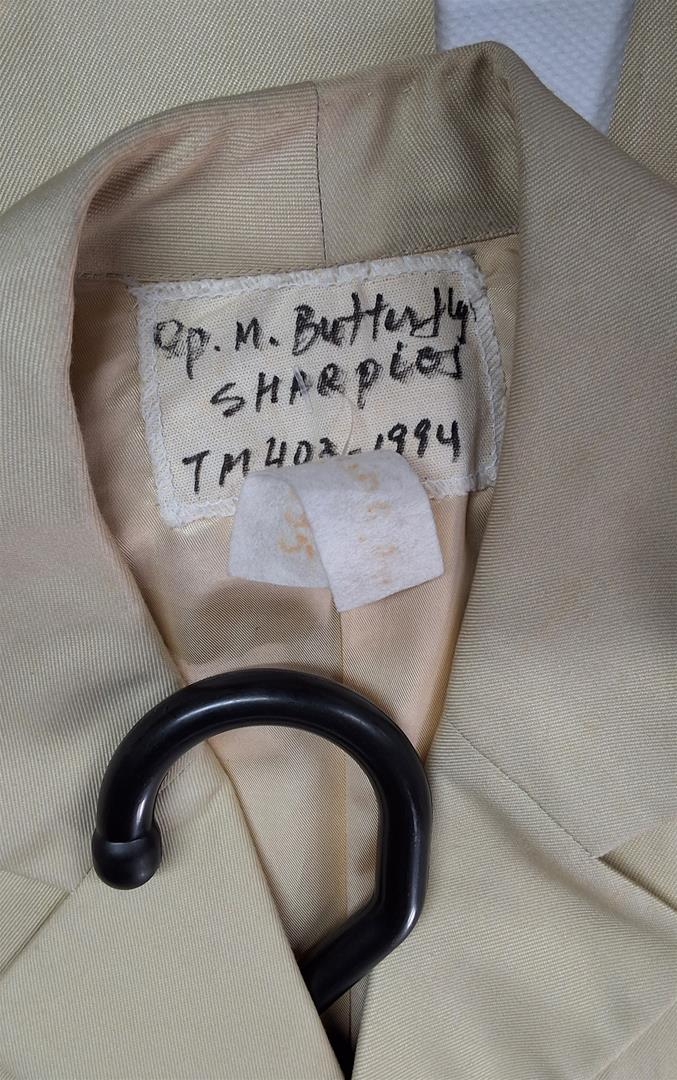 Op. M. Butterfly
SHARples
TM 403-1994